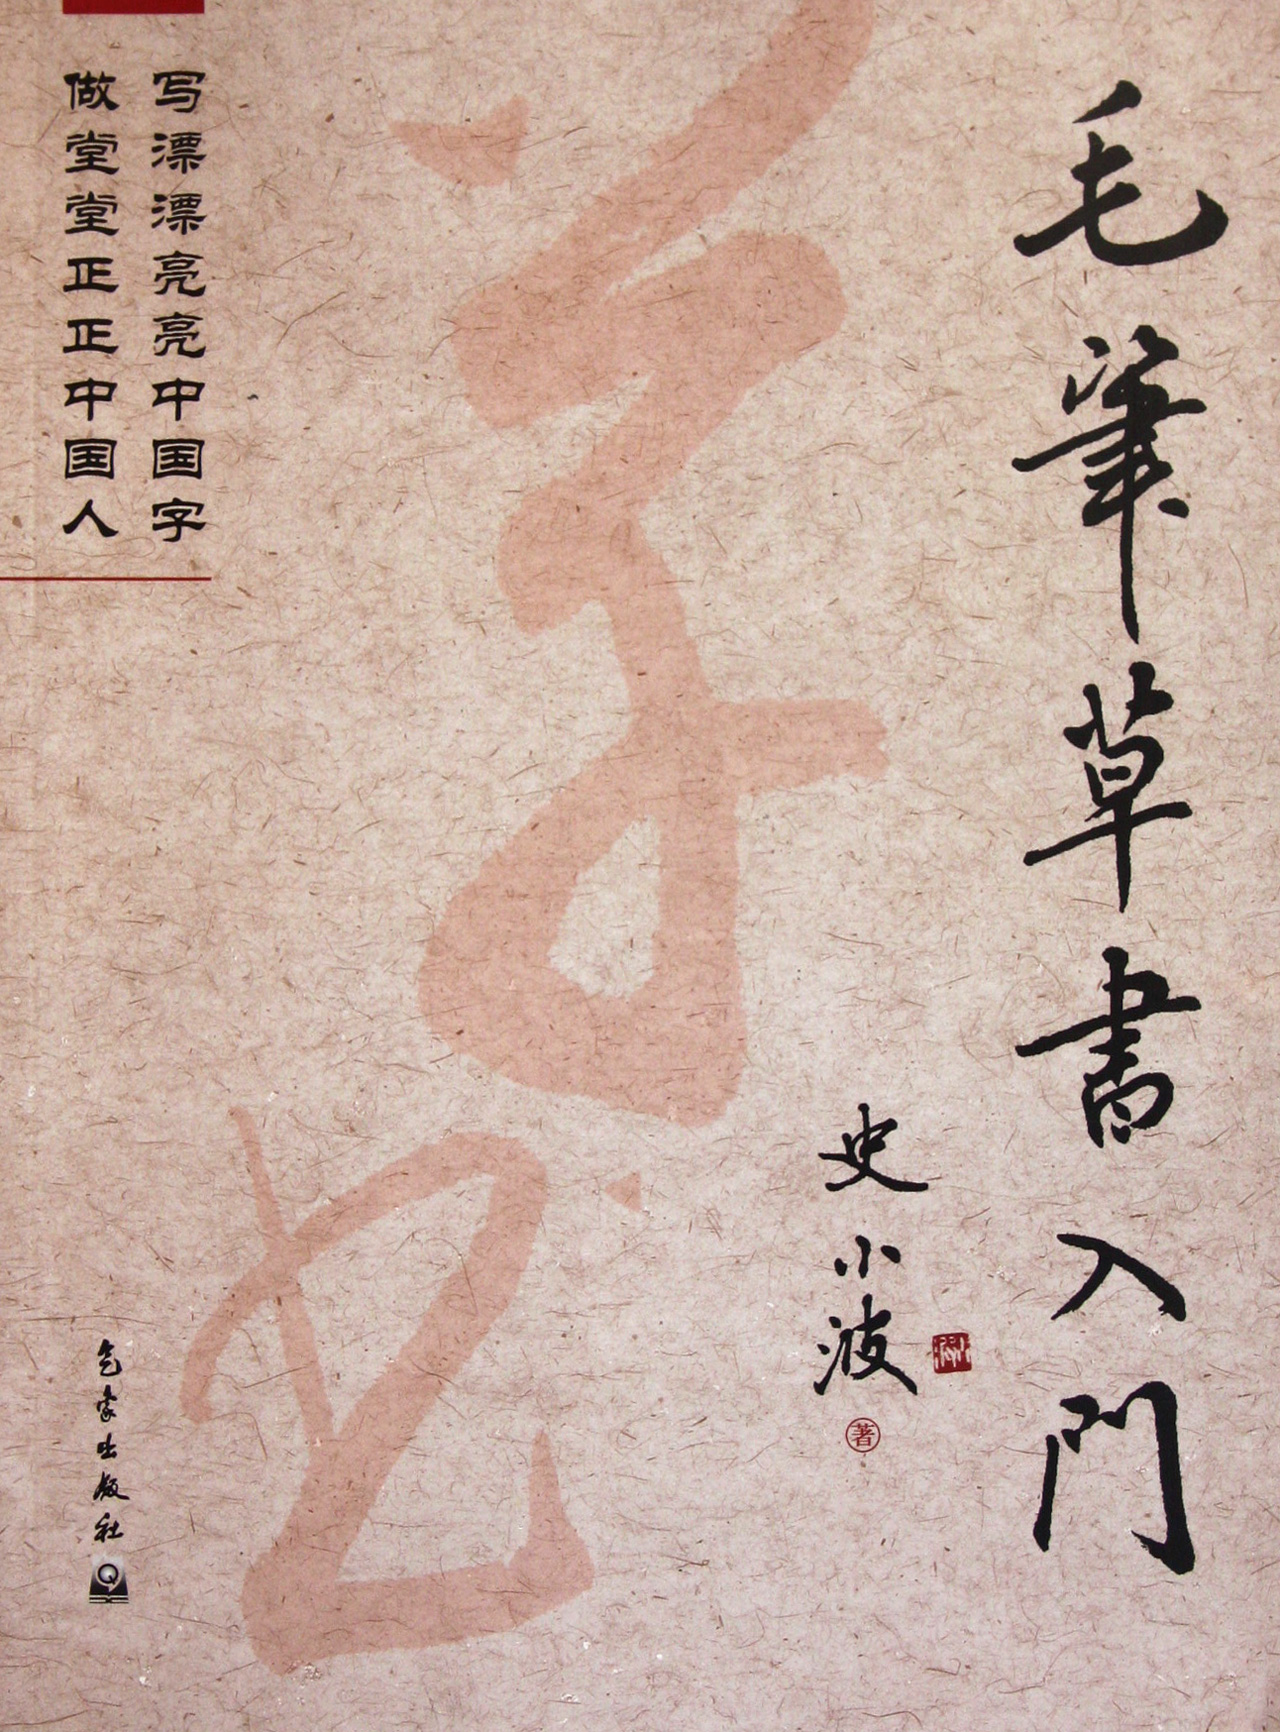 毛筆草書入門
史小波
著
写漂漂亮亮中国字
做堂堂正正中国人
气象出版社